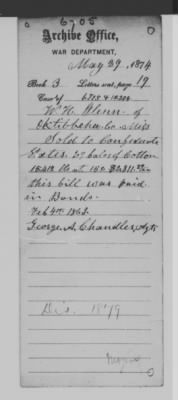 6705
Archive Office,
WAR DEPARTMENT,
May 29, 1874
Book 3 Letters was, page 19
Case of 6705 &
W. H. Glenn of
Oktibbeha Co Miss
Sold to Confederate
States 57 bales of Cotton
this bill was paid
in Bonds.
Feby 4th 1863.
George A. Chandler, Agt
Dis. 1879